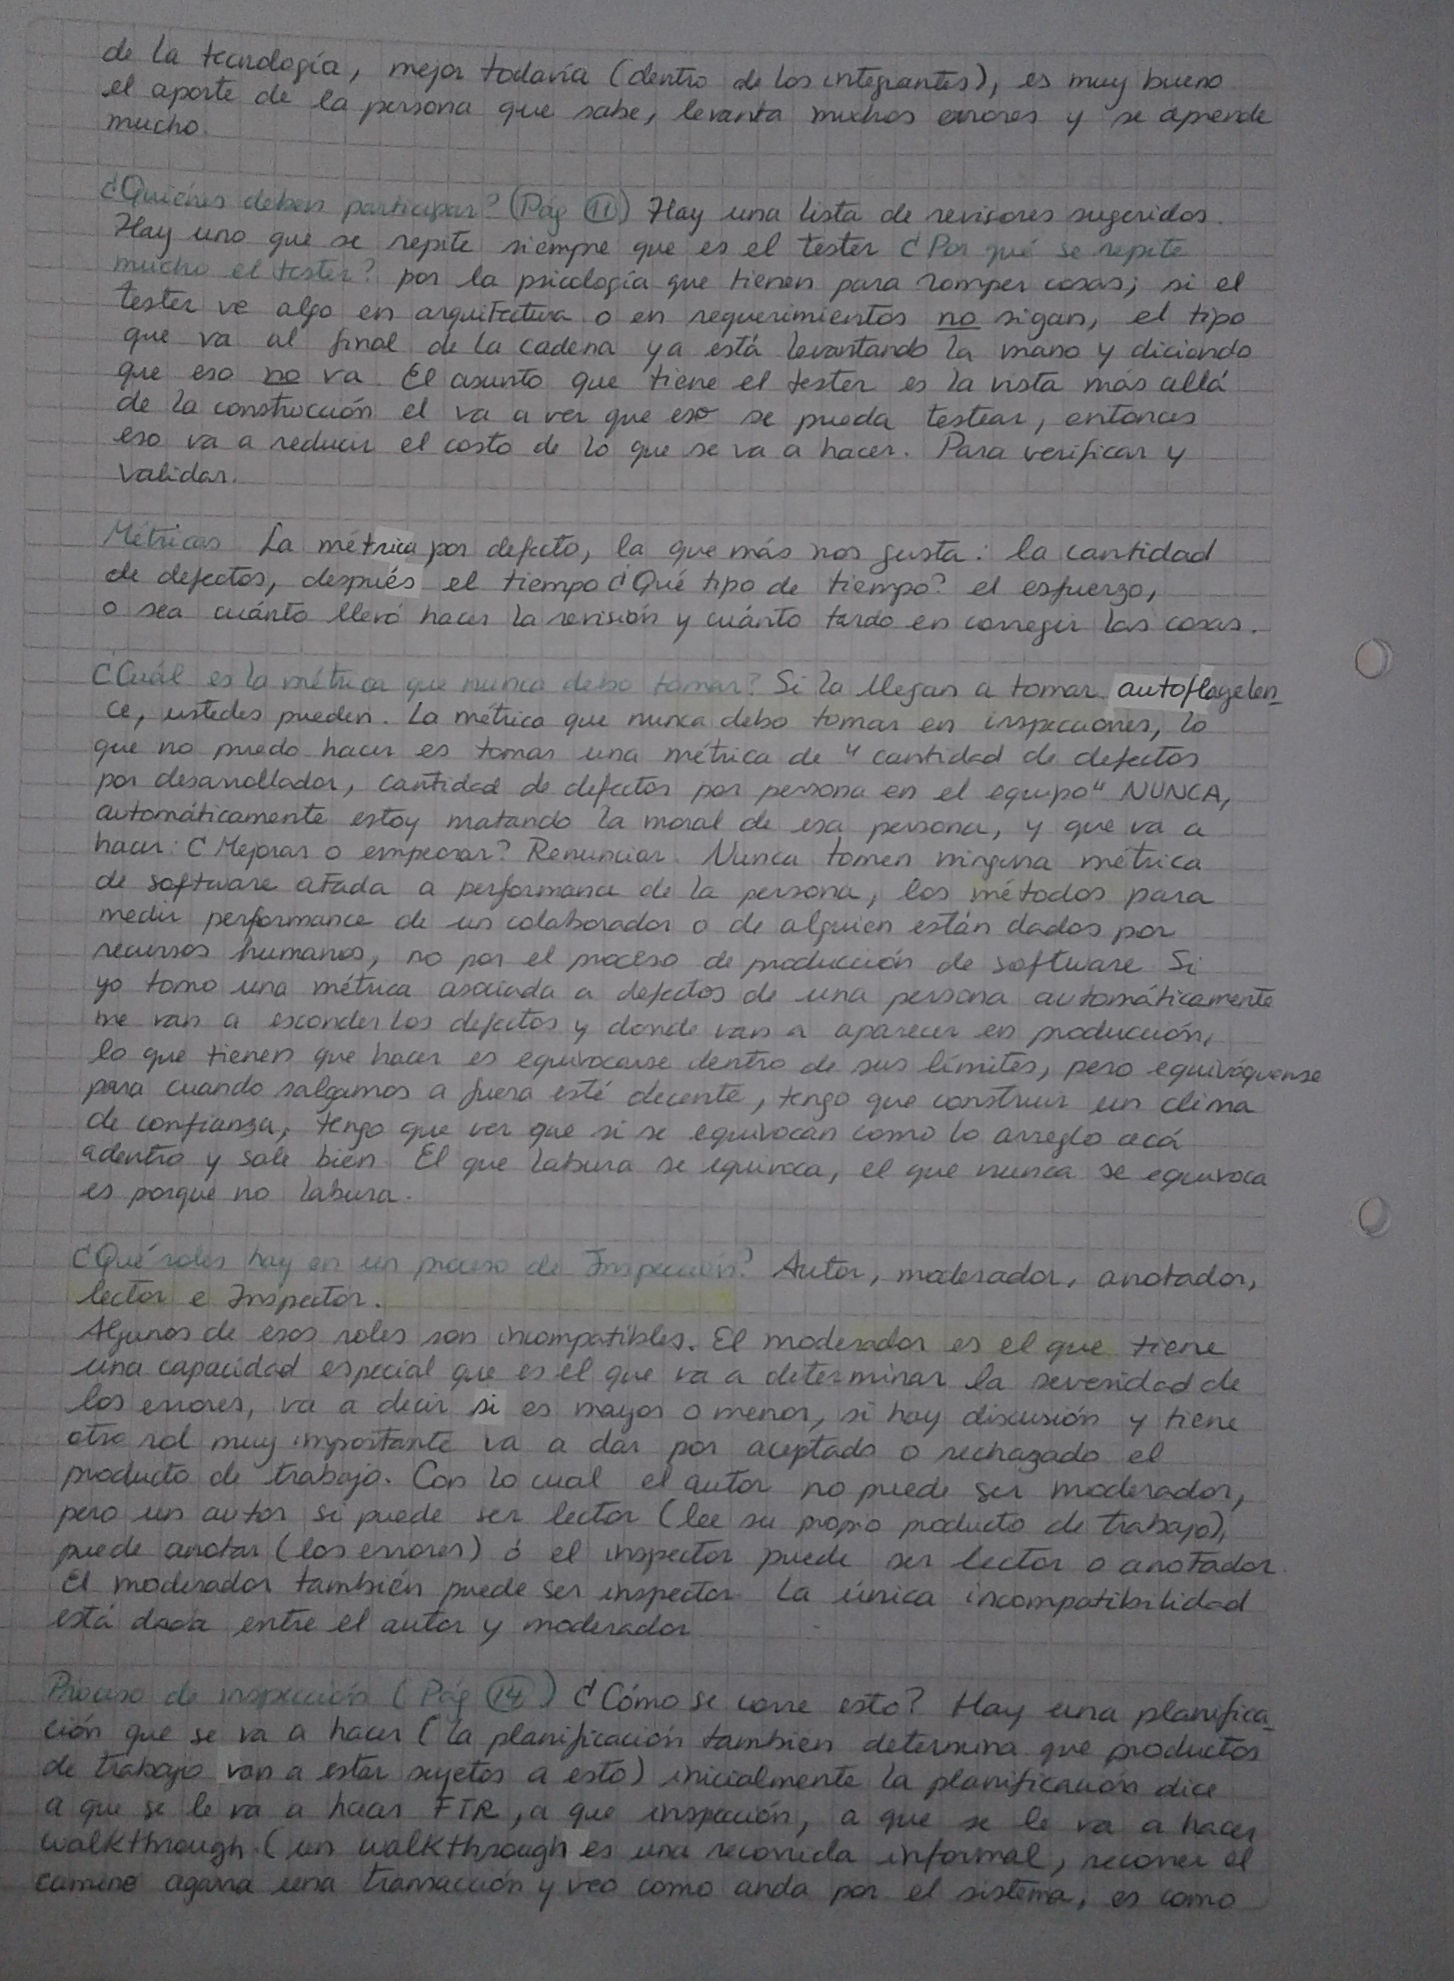 de la tecnología, mejor todavía (dentro de los integrantes), es muy bueno
el aporte de la persona que sabe, levanta muchos errores y se aprende
mucho.
¿Quiénes deben participar? (Pág 11) Hay una lista de revisores sugeridos.
Hay uno que se repite siempre que es el tester ¿Por qué se repite
mucho el tester? por la psicología que tienen para romper cosas; si el
tester ve algo en arquitectura o en requerimientos no sigan, el tipo
que va al final de la cadena ya está levantando la mano y diciendo
que eso no va. El asunto que tiene el tester es la vista más allá
de la construcción el va a ver que eso se pueda testear, entonces
eso va a reducir el costo de lo que se va a hacer. Para verificar y
validar.
Métricas La métrica por defecto, la que más nos gusta: la cantidad
de defectos, después el tiempo ¿Qué tipo de tiempo? el esfuerzo,
o sea cuánto llevó hacer la revisión y cuánto tardo en corregir las cosas.
¿Cuál es la métrica que nunca debo tomar? Si la llegan a tomar autoflagelen_
ce, ustedes pueden. La métrica que nunca debo tomar en inspecciones, lo
que no puedo hacer es tomar una métrica de "cantidad de defectos
por desarrollador, cantidad de defectos por persona en el equipo" NUNCA,
automáticamente estoy matando la moral de esa persona, y que va a
hacer: ¿Mejorar o empeorar? Renunciar. Nunca tomen ninguna métrica
de software atada a performance de la persona, los métodos para
medir performance de un colaborador o de alguien están dados por
recursos humanos, no por el proceso de producción de software Si
yo tomo una métrica asociada a defectos de una persona automáticamente
me van a esconder los defectos y donde van a aparecer en producción,
lo que tienen que hacer es equivocarse dentro de sus límites, pero equivóquense
para cuando salgamos a fuera esté decente, tengo que construir un clima
de confianza, tengo que ver que si se equivocan como lo arreglo acá
adentro y sale bien. El que labura se equivoca, el que nunca se equivoca
es porque no labura.
¿Qué roles hay en un proceso de Inspección? Autor, moderador, anotador,
lector e Inspector.
Algunos de esos roles son incompatibles. El moderador es el que tiene
una capacidad especial que es el que va a determinar la severidad de
los errores, va a decir si es mayor o menor, si hay discusión y tiene
otro rol muy importante va a dar por aceptado o rechazado el
producto de trabajo. Con lo cual el autor no puede ser moderador,
pero un autor si puede ser lector (lee su propio producto de trabajo),
puede anotar (los errores) ó el inspector puede ser lector o anotador.
El moderador también puede ser inspector. La única incompatibilidad
está dada entre el autor y moderador
Proceso de inspección (Pág 14) ¿Cómo se corre esto? Hay una planifica_
ción que se va a hacer (la planificación también determina que productos
de trabajo van a estar sujetos a esto) inicialmente la planificación dice
a que se le va a hacer FTR, a que inspección, a que se le va a hacer
walkthrough. (un walkthrough es una recorrida informal, recorrer el
camino agarra una transacción y veo como anda por el sistema, es como